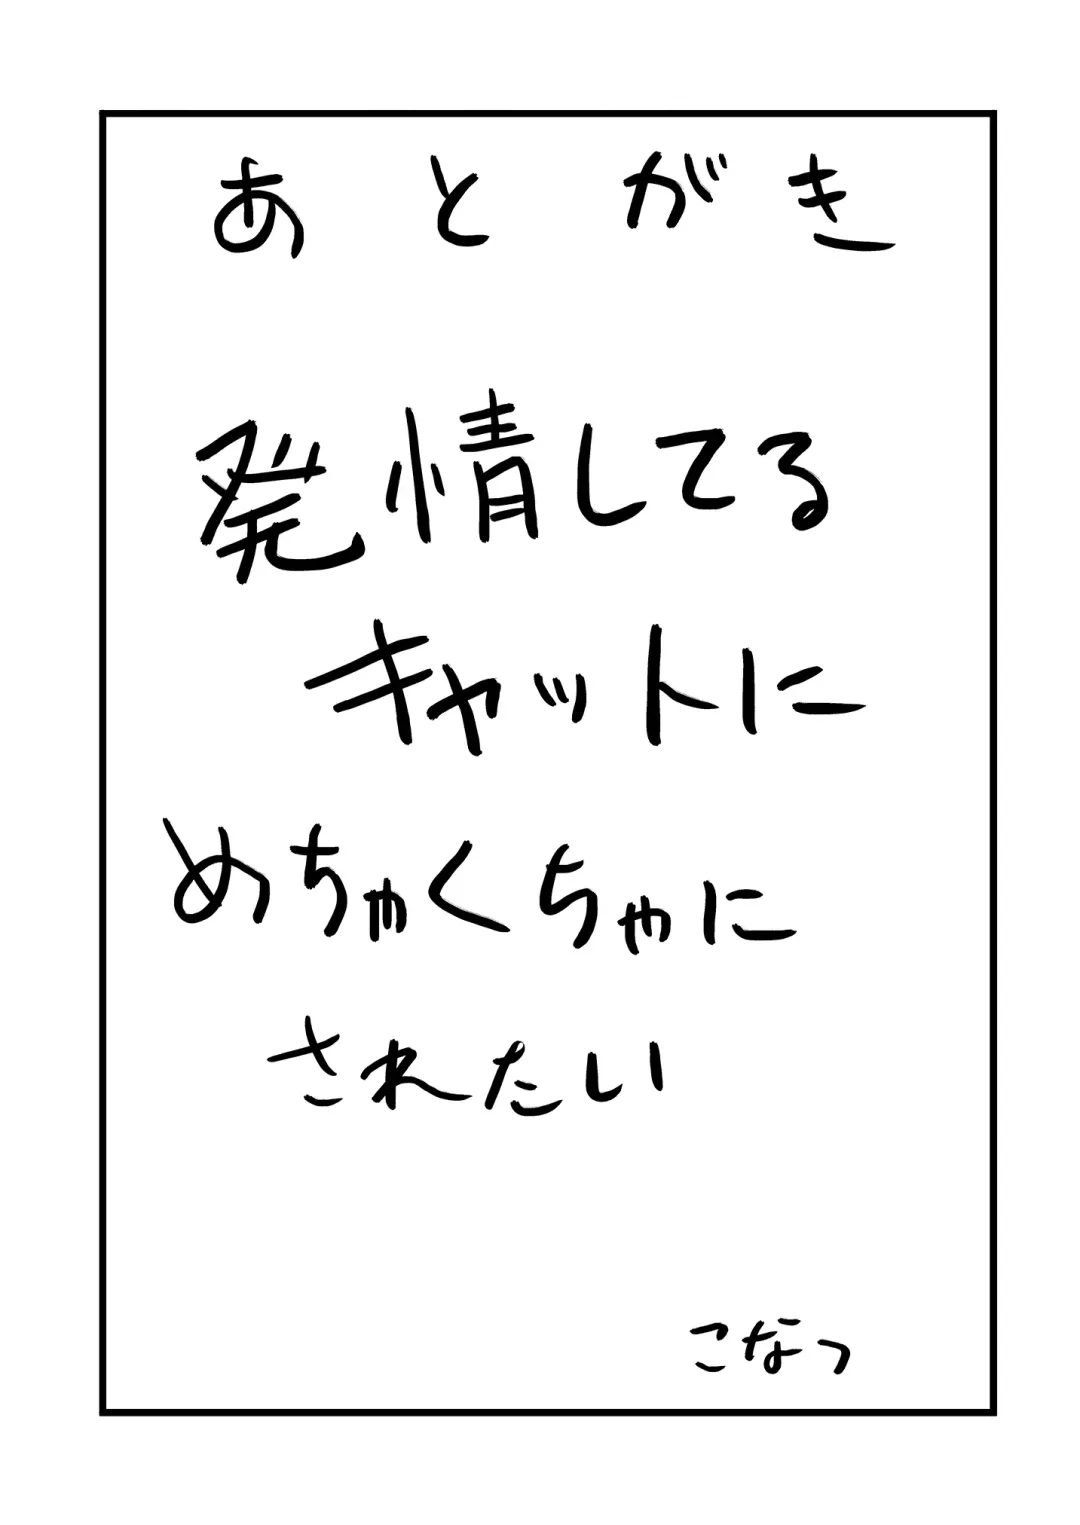 あとがき
発情してる
キャットに
めちゃくちゃに
されたい
こなつ